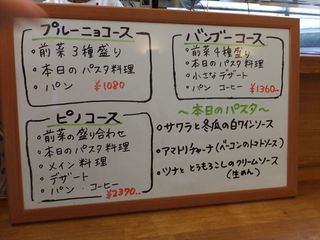 プルーニョコース
・前菜3種盛り
・本日のパスタ料理
・パン ¥1080
バンブーコース
・前菜4種盛り
・本日のパスタ料理
・小さなデザート
・パン コーヒー ¥1360
ピノコース
・前菜の盛り合わせ
・本日のパスタ料理
・メイン料理
・デザート
・パン・コーヒー
¥2370
～本日のパスタ～
・サワラと冬瓜の白ワインソース
・アマトリチャーナ(ベーコンのトマトソース)
・ツナととうもろこしのクリームソース
(生めん)